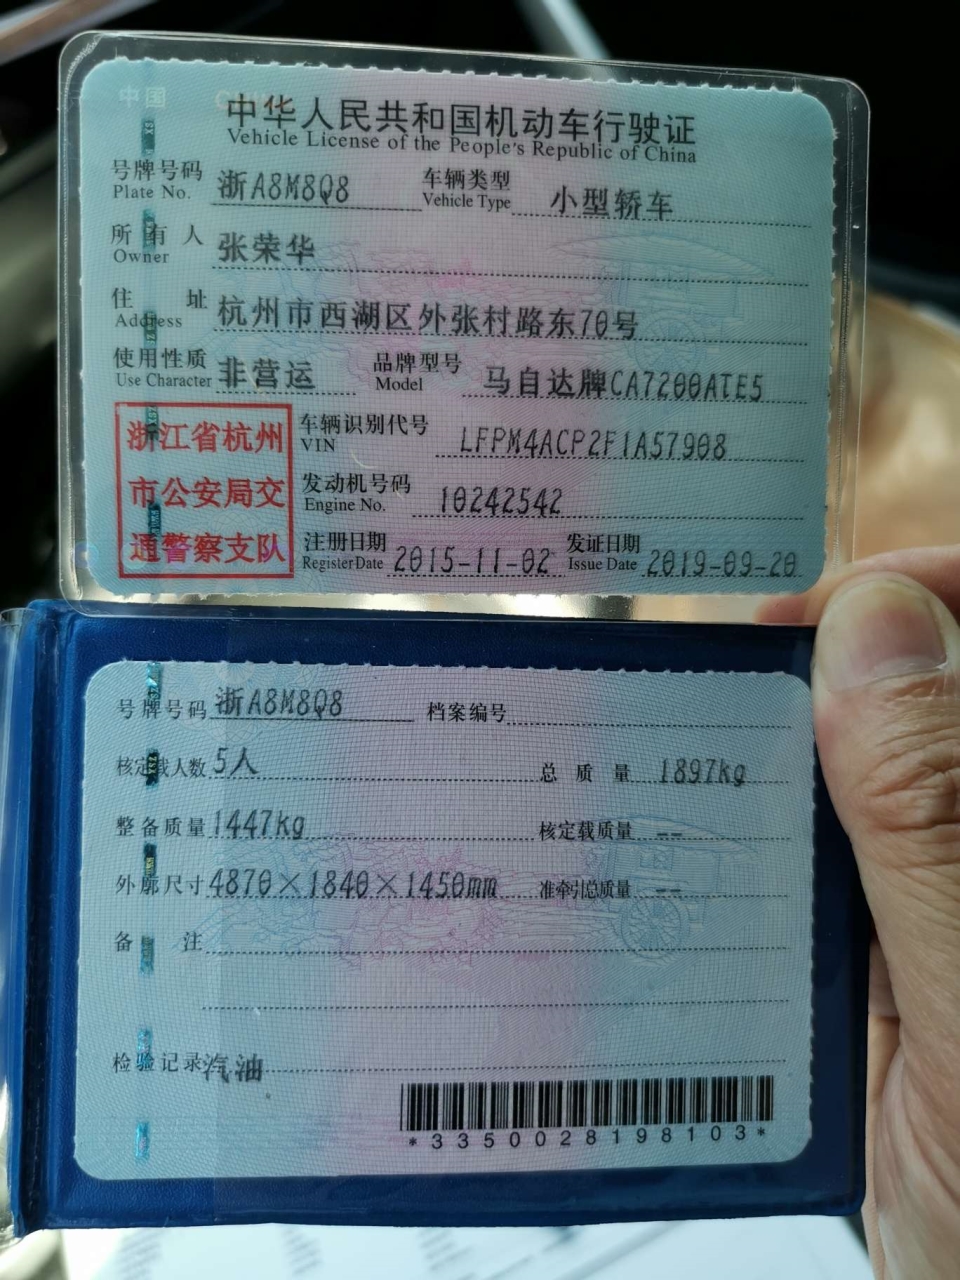 中国 CHINA
中华人民共和国机动车行驶证
Vehicle License of the People's Republic of China
号牌号码 浙A8M8Q8 车辆类型 小型轿车
Plate No. Vehicle Type
所有人 张荣华
Owner
住址 杭州市西湖区外张村路东70号
Address
使用性质 非营运 品牌型号 马自达牌CA7200ATE5
Use Character Model
浙江省杭州
市公安局交
通警察支队
车辆识别代号 LFPM4ACP2F1A57908
VIN
发动机号码 10242542
Engine No.
注册日期 2015-11-02 发证日期 2019-09-20
Register Date Issue Date
号牌号码 浙A8M8Q8 档案编号
核定载人数 5人 总质量 1897kg
整备质量 1447kg 核定载质量 --
外廓尺寸 4870×1840×1450mm 准牵引总质量 --
备注
检验记录 汽油
*3350028198103*